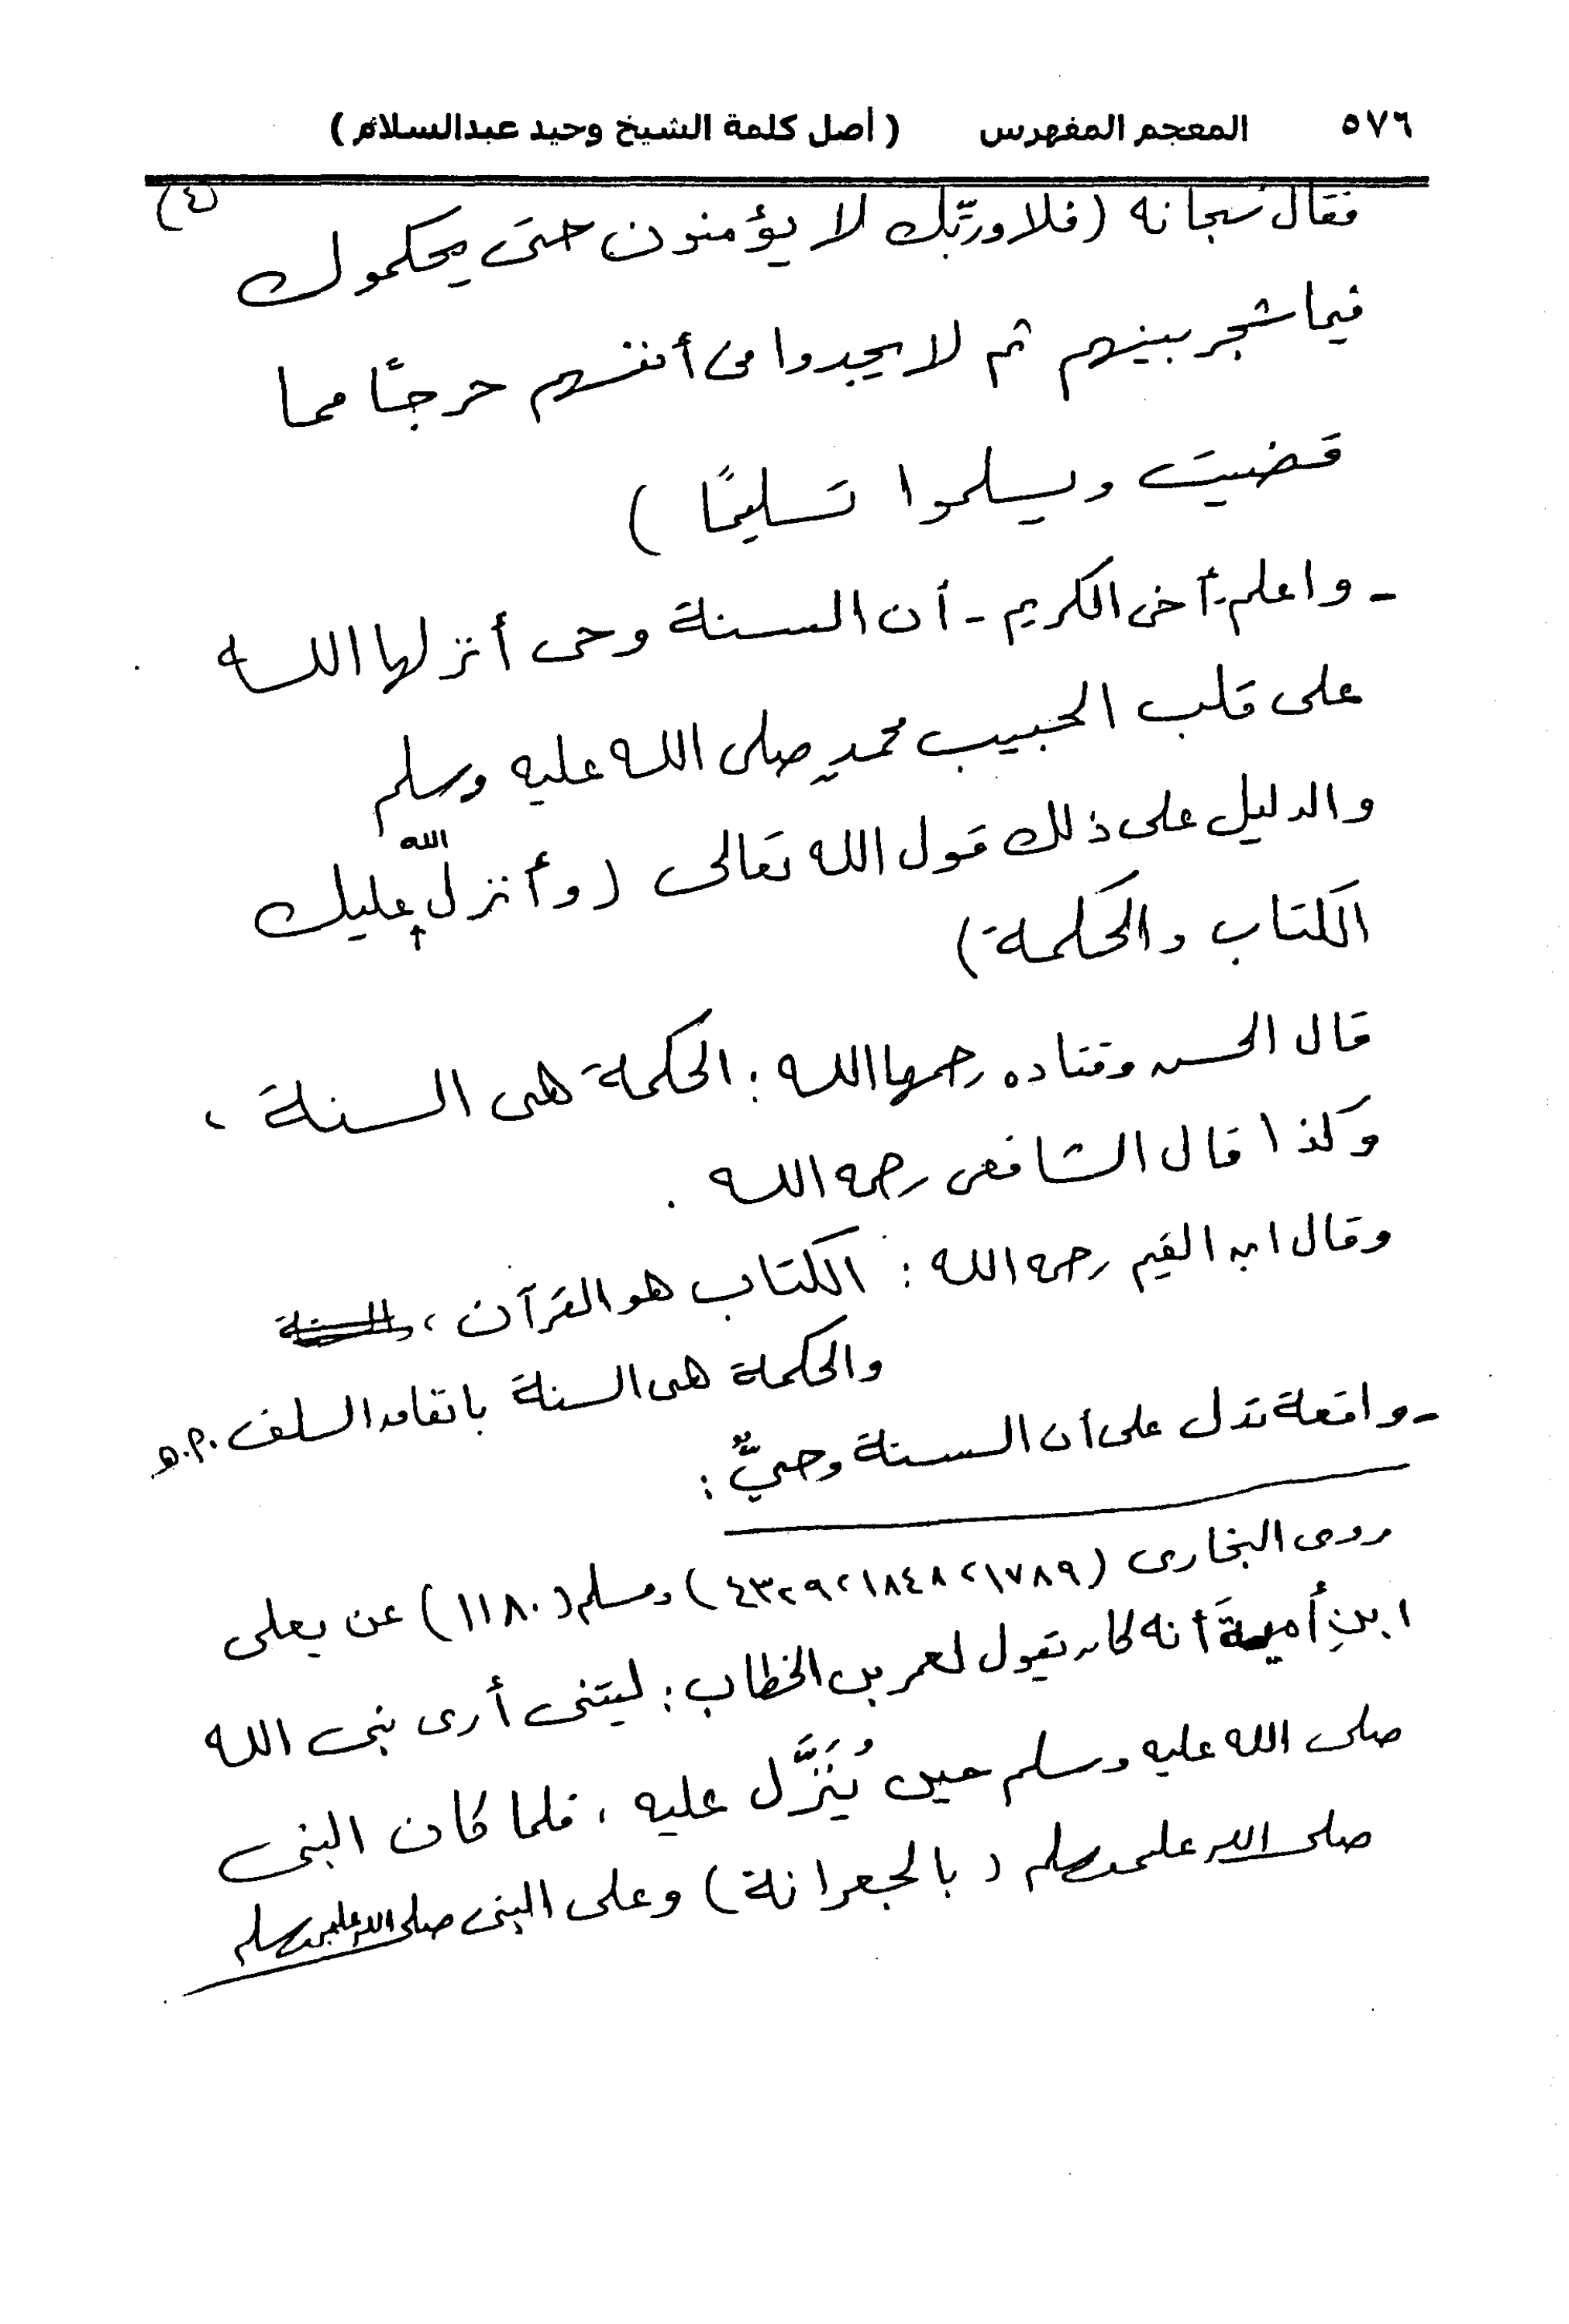 ٥٧٦ المعجم المفهرس ( أصل كلمة الشيخ وحيد عبدالسلام )
(٤)
فقال سبحانه (فلا وربّك لا يؤمنون حتى يحكموك
فيما شجر بينهم ثم لا يجدوا فى أنفسهم حرجًا مما
قضيت ويسلموا تسليمًا )
- واعلم - أخى الكريم - أن السنة وحى أنزلها الله
على قلب الحبيب محمدٍ صلى الله عليه وسلم
والدليل على ذلك قول الله تعالى ( وأنزل الله عليك
الكتاب والحكمة )
قال الحسن وقتاده رحمهما الله : الحكمة هى السنة ،
وكذا قال الشافعى رحمه الله .
وقال ابن القيم رحمه الله : الكتاب هو القرآن ، والسنة
والحكمة هى السنة باتفاق السلف . ا.هـ
- واقعة تدل على أن السنة وحيٌّ :
روى البخارى (١٧٨٩، ١٨٤٨، ٤٣٢٩) ومسلم (١١٨٠) عن يعلى
ابنِ أُميةَ أنه كان يقول لعمر بن الخطاب : ليتنى أرى نبى الله
صلى الله عليه وسلم حين يُنَزَّل عليه ، فلما كان النبى
صلى الله عليه وسلم ( بالجعرانة ) وعلى النبى صلى الله عليه وسلم